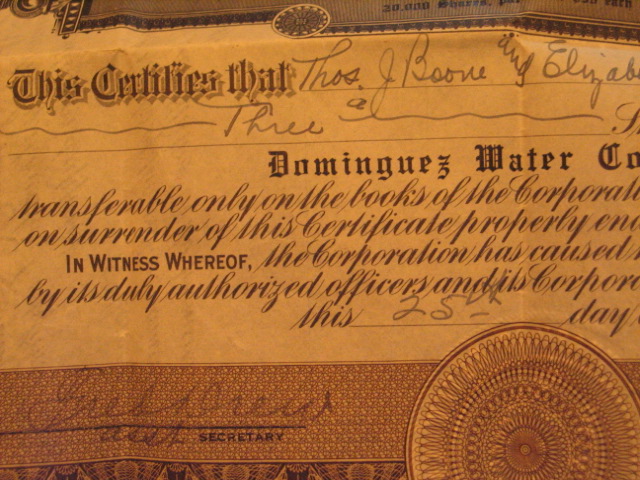 20,000 Shares, par
This Certifies that Thos. J Boone and Elizab
Three
Dominguez Water Co
transferable only on the books of the Corporat
on surrender of this Certificate properly en
In Witness Whereof, the Corporation has caused
by its duly authorized officers and its Corpor
this 25th day
Asst SECRETARY